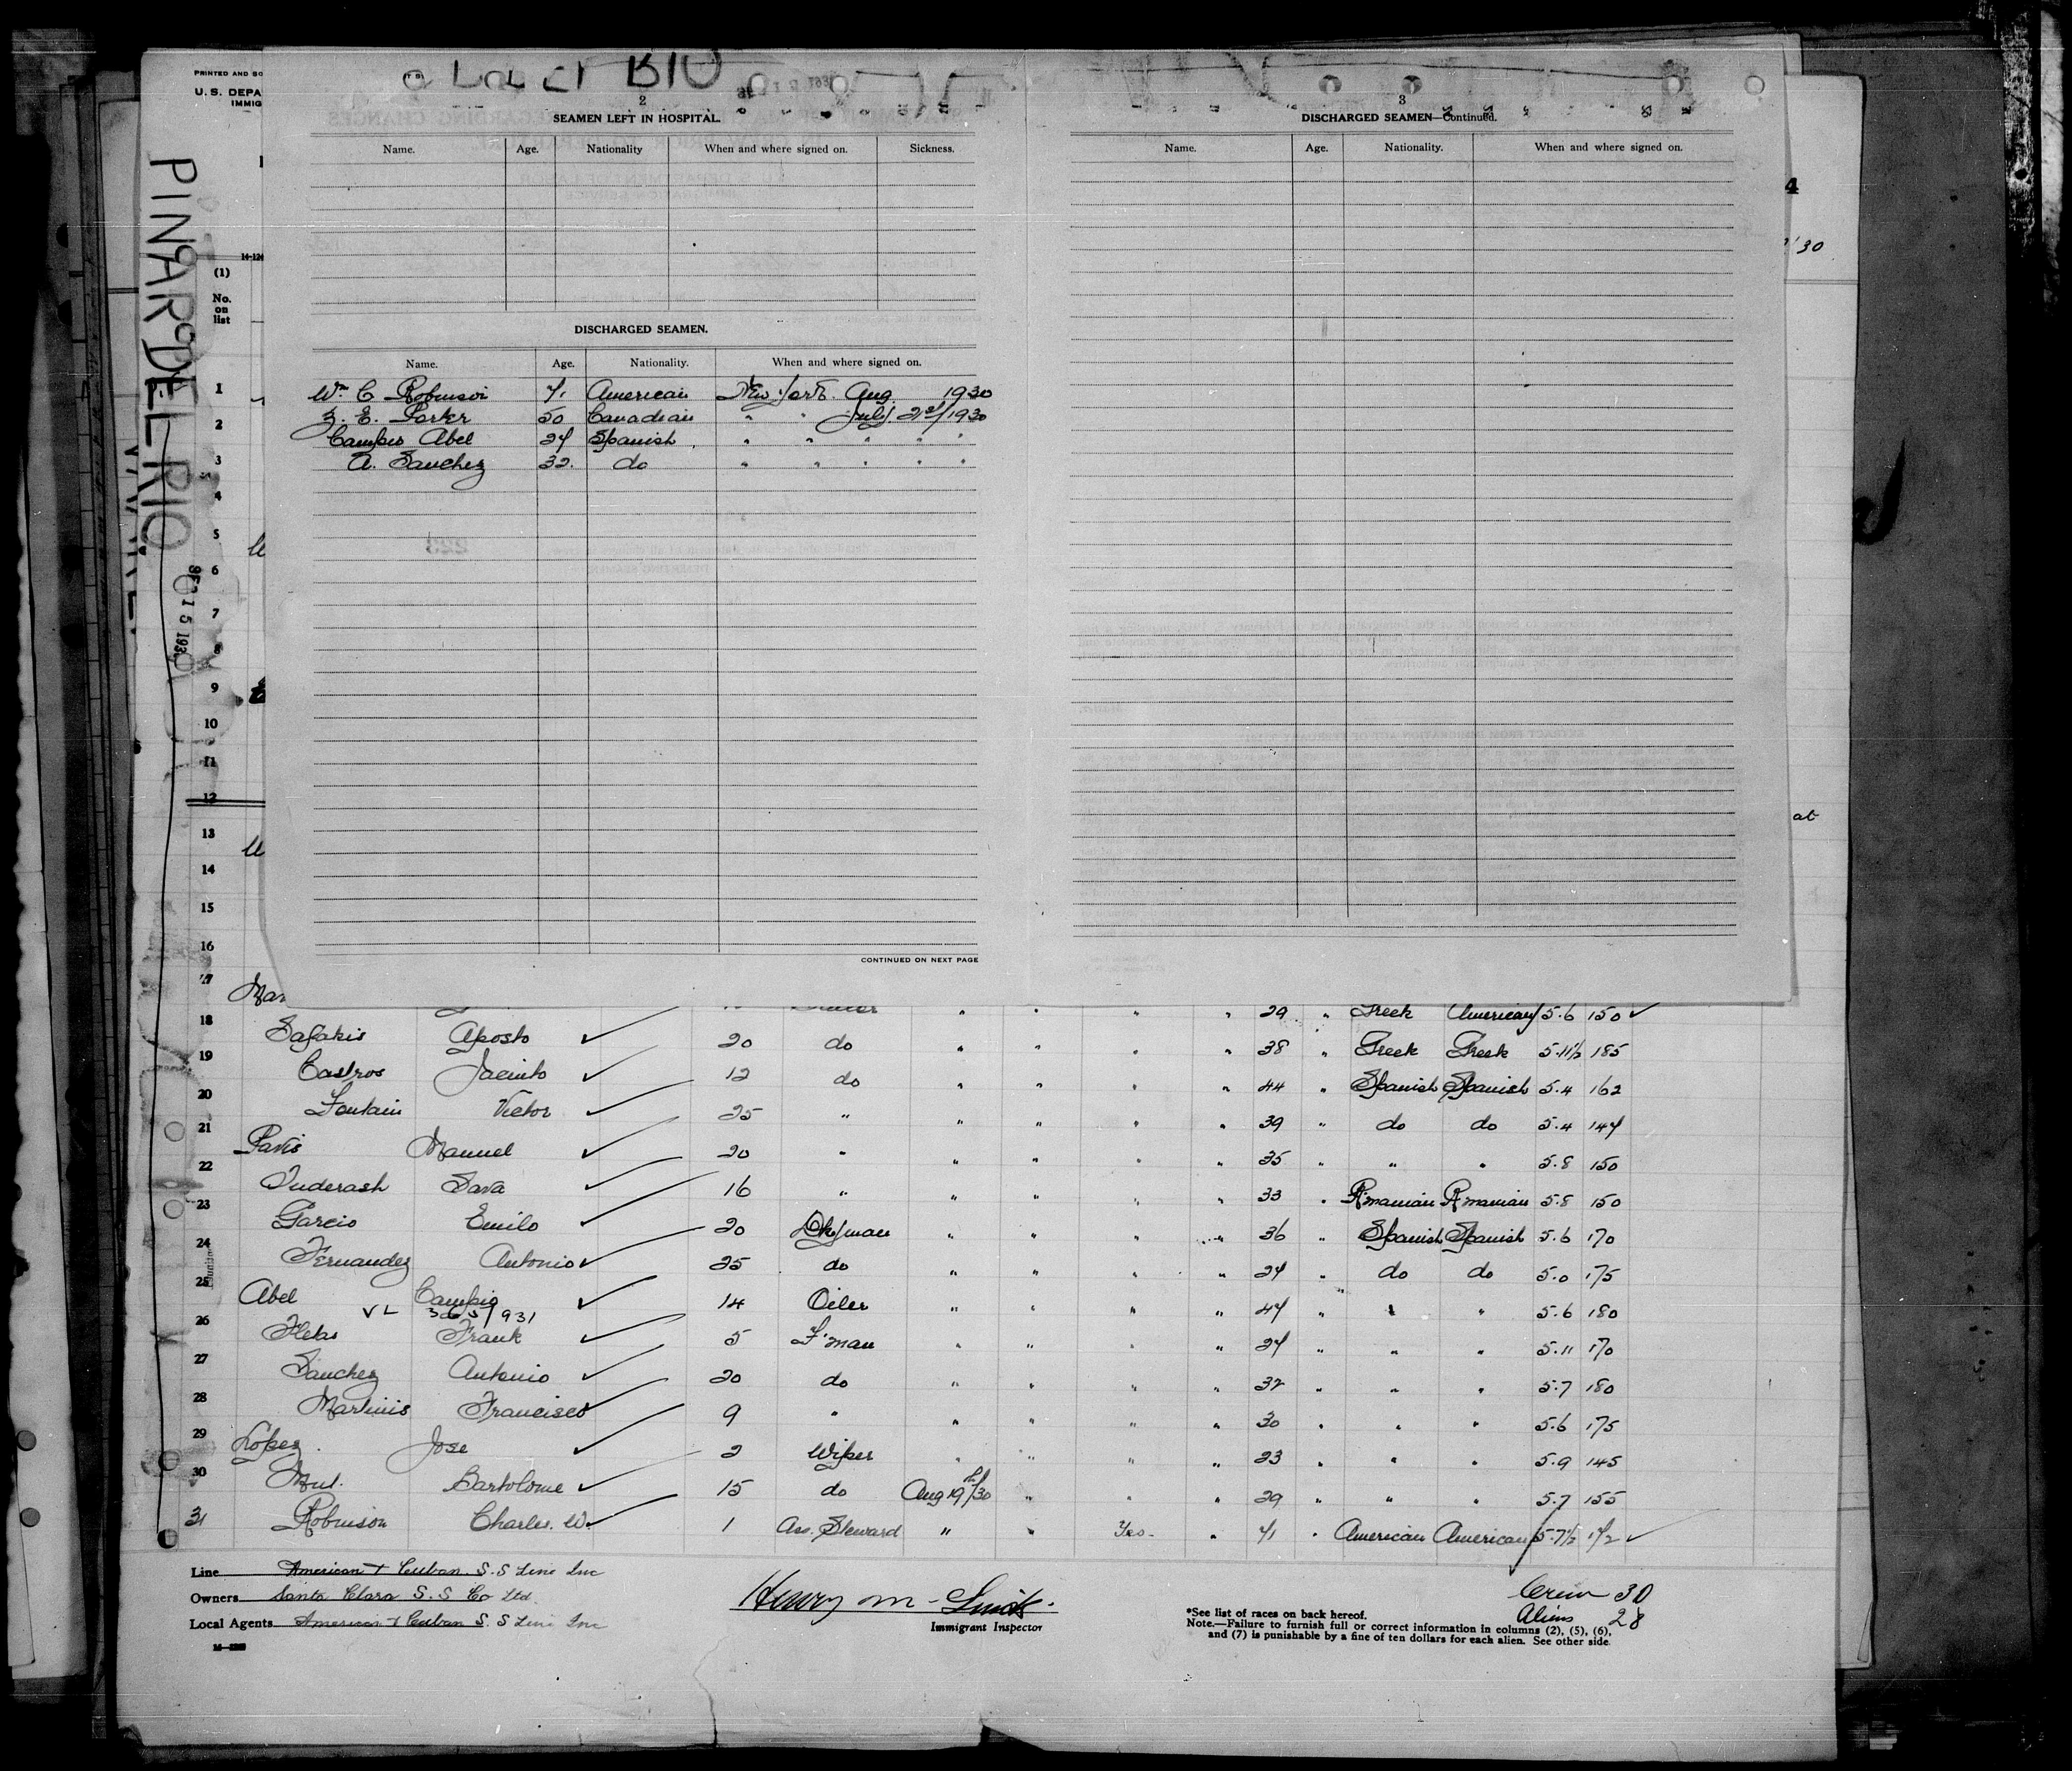 PRINTED AND SO
U. S. DEPA
IMMIG
PINAR DEL RIO
14-124
(1)
No.
on
list
2
SEAMEN LEFT IN HOSPITAL.
Name. Age. Nationality When and where signed on. Sickness.
DISCHARGED SEAMEN.
Name. Age. Nationality. When and where signed on.
Wm C Robinson 71 American New York. Aug. 1930
E. Parker 50 Canadian " " July 21st/1930
Campio Abel 24 Spanish " " " " "
A. Sanchez 32. do " " " " "
CONTINUED ON NEXT PAGE
3
DISCHARGED SEAMEN—Continued.
Name. Age. Nationality. When and where signed on.
4
30
at
1
2
3
4
5
6
7
8
9
10
11
12
13
14
15
16
17 Mar 29 " Greek American 5.6 150 ✓
18 Safakis Aposto ✓ 20 do " " " " 38 " Greek Greek 5.11½ 185
19 Castros Jacinto ✓ 12 do " " " " 44 " Spanish Spanish 5.4 162
20 Fontain Victor ✓ 25 " " " " " 39 " do do 5.4 147
21 Paris Manuel ✓ 20 " " " " " 35 " " " 5.8 150
22 Suderash Sava ✓ 16 " " " " " 33 " R'manian R'manian 5.8 150
23 Garcio Emilo ✓ 20 Dkyman " " " " 36 " Spanish Spanish 5.6 170
24 Fernandez Antonio ✓ 25 do " " " " 24 " do do 5.0 175
25 Abel Campio ✓ 14 Oiler " " " " 47 " " " 5.6 180
VL 365/931
26 Frank ✓ 5 F'man " " " " 24 " " " 5.11 170
27 Sanchez Antonio ✓ 20 do " " " " 32 " " " 5.7 180
28 Martinis Francisco ✓ 9 " " " " " 30 " " " 5.6 175
29 Lopez. Jose ✓ 2 Wiper " " " " 23 " " " 5.9 145
30 Mut. Bartolome ✓ 15 do Aug 19th/30 " " " 29 " " " 5.7 155
31 Robinson Charles. W. ✓ 1 Ass. Steward " " Yes- " 71 " American American 5.7½ 172 ✓
Line American & Cuban. S.S Line Inc
Owners Santa Clara S.S Co Ltd.
Local Agents American & Cuban S.S Line Inc
Henry M. Smith.
Immigrant Inspector
Crew 30
Aliens 28
*See list of races on back hereof.
Note.—Failure to furnish full or correct information in columns (2), (5), (6),
and (7) is punishable by a fine of ten dollars for each alien. See other side.